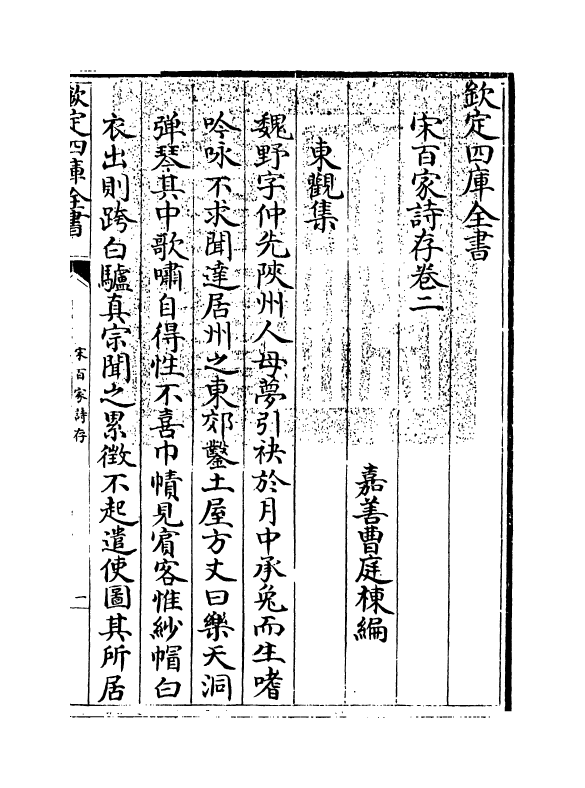 欽定四庫全書
宋百家詩存卷二
嘉善曹庭棟編
東觀集
魏野字仲先陜州人母夢引袂於月中承兔而生嗜
吟咏不求聞達居州之東郊鑿土屋方丈曰樂天洞
弹琴其中歌嘯自得性不喜巾幘見賓客惟紗帽白
衣出則跨白驢真宗聞之累徴不起遣使圖其所居
欽定四庫全書
宋百家詩存
一